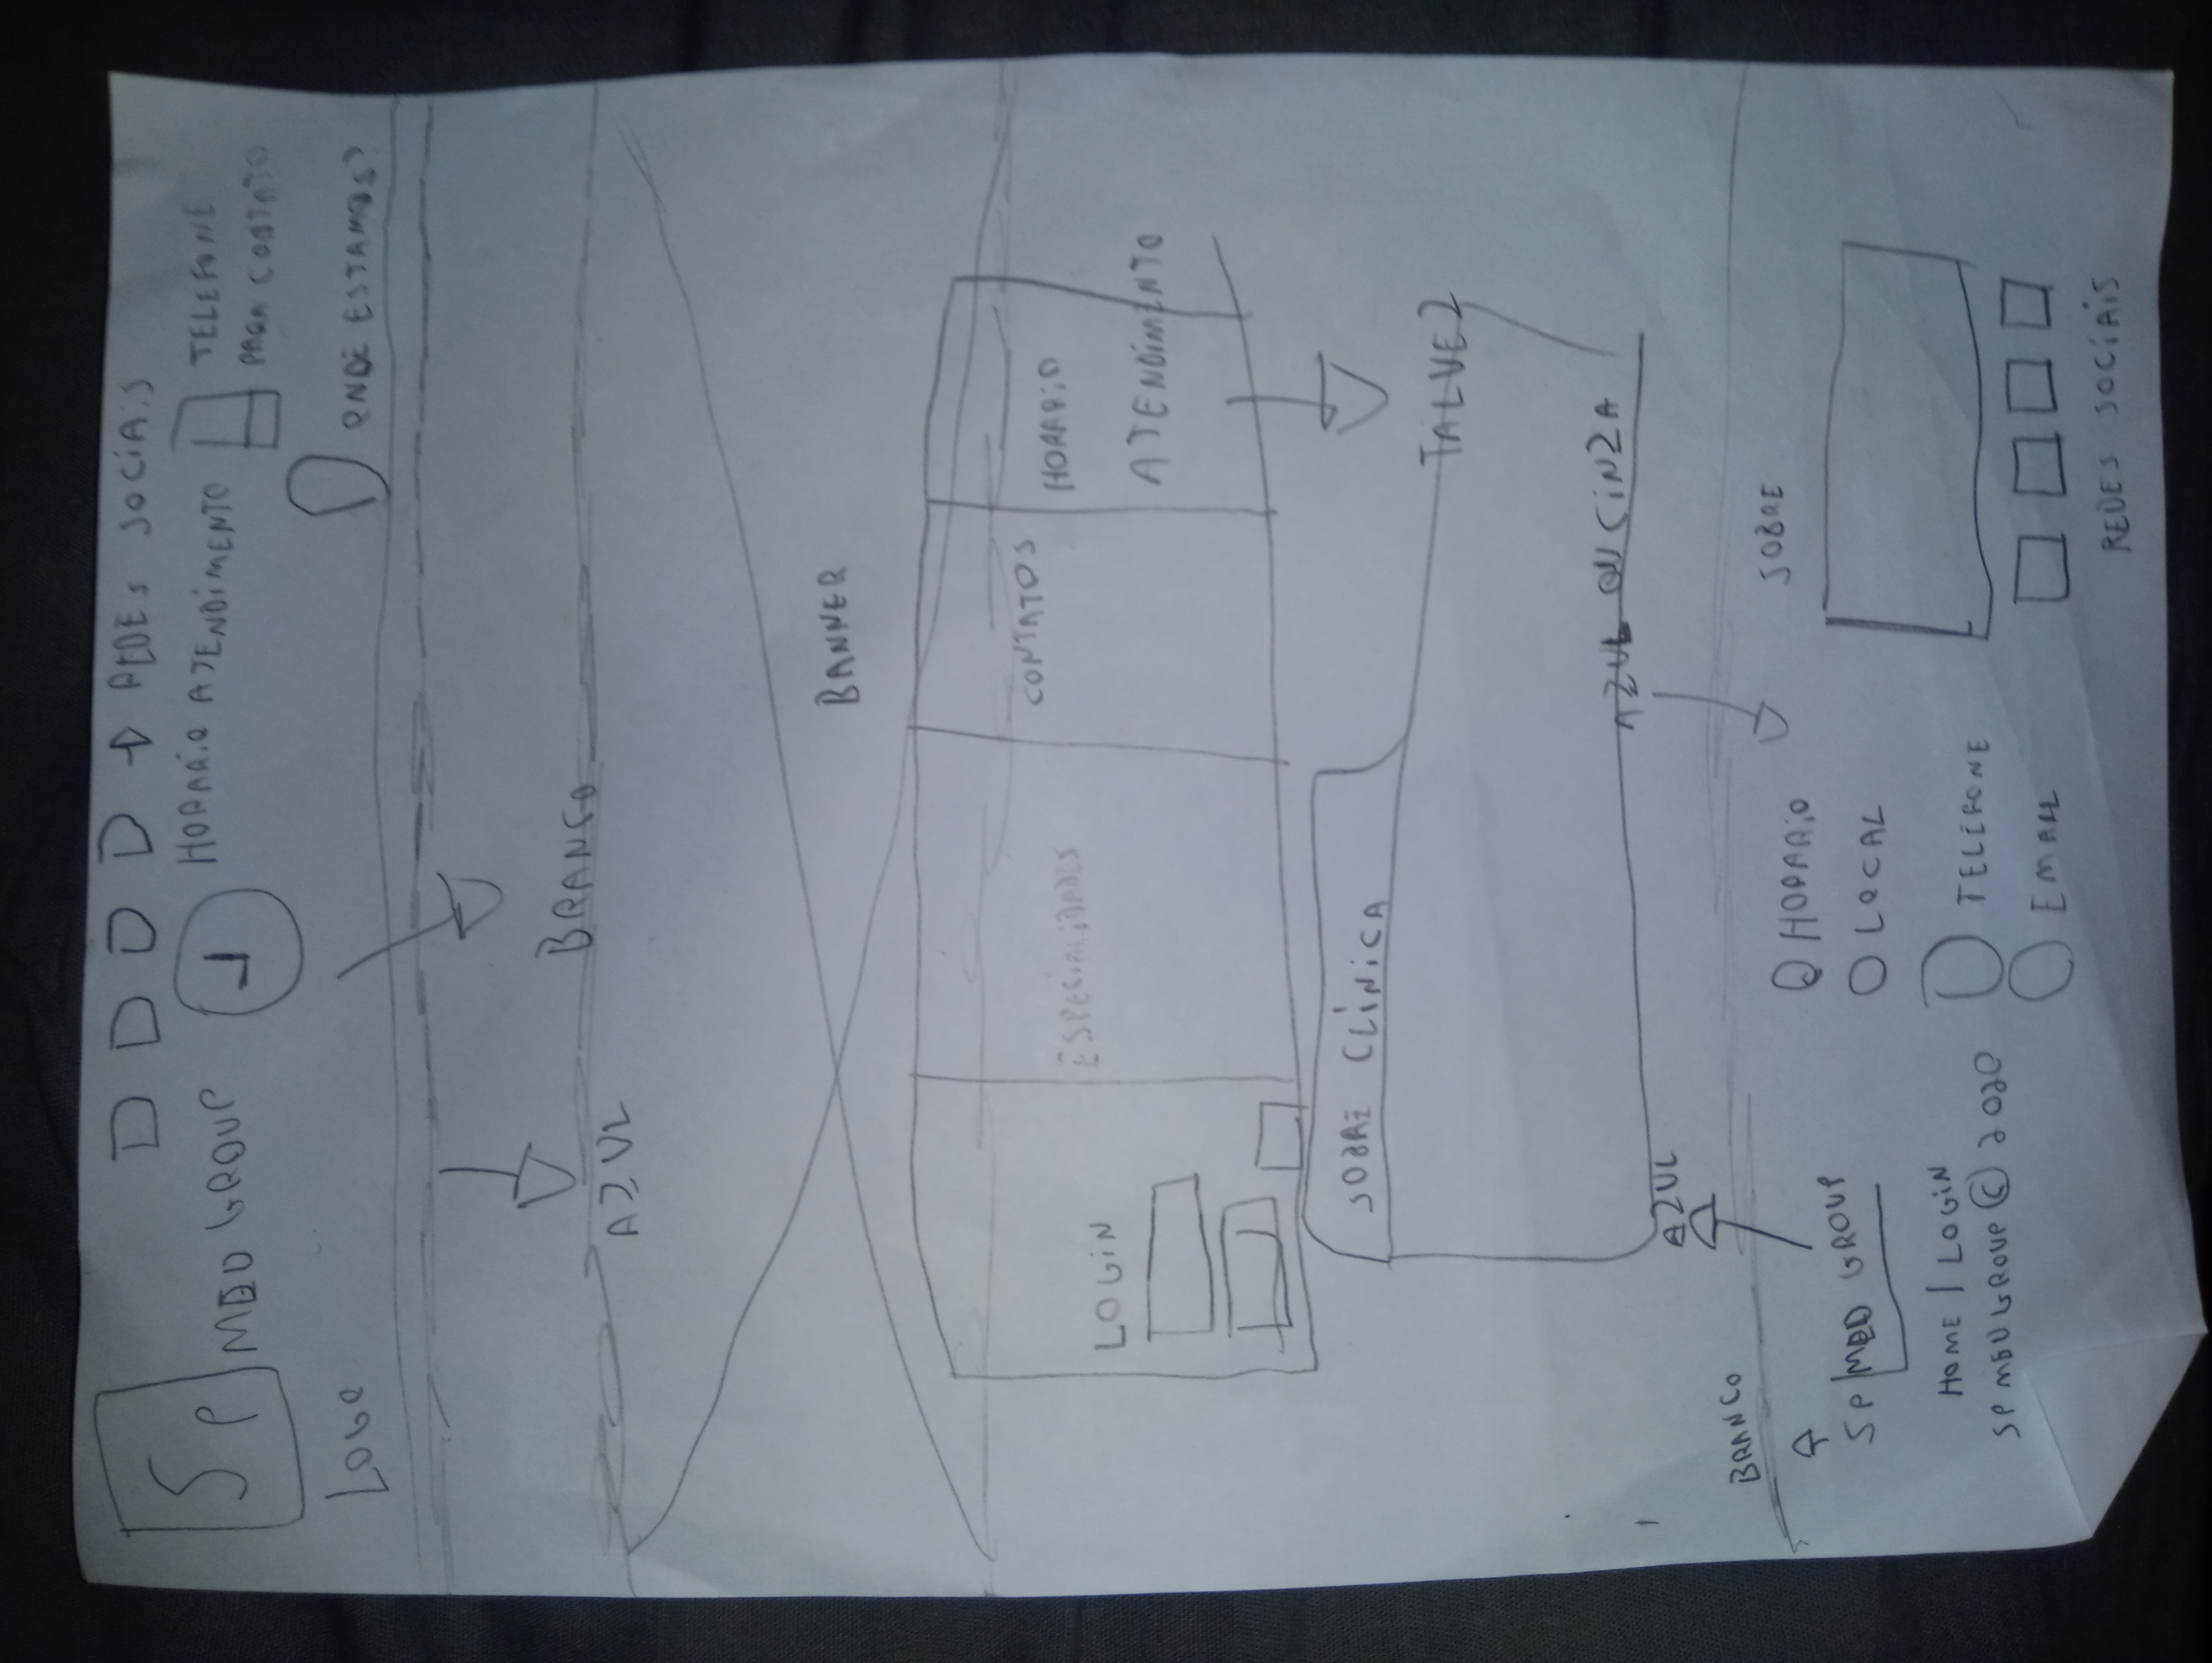 REDES SOCIAIS
SP MED GROUP
HORARIO ATENDIMENTO
TELEFONE
PARA CONTATO
LOGO
ONDE ESTAMOS?
BRANCO
AZUL
BANNER
LOGIN
ESPECIALIDADES
CONTATOS
HORARIO
ATENDIMENTO
SOBRE CLÍNICA
TALVEZ
AZUL OU CINZA
AZUL
BRANCO
SP MED GROUP
HOME / LOGIN
SP MED GROUP © 2020
HORARIO
LOCAL
TELEFONE
EMAIL
SOBRE
REDES SOCIAIS